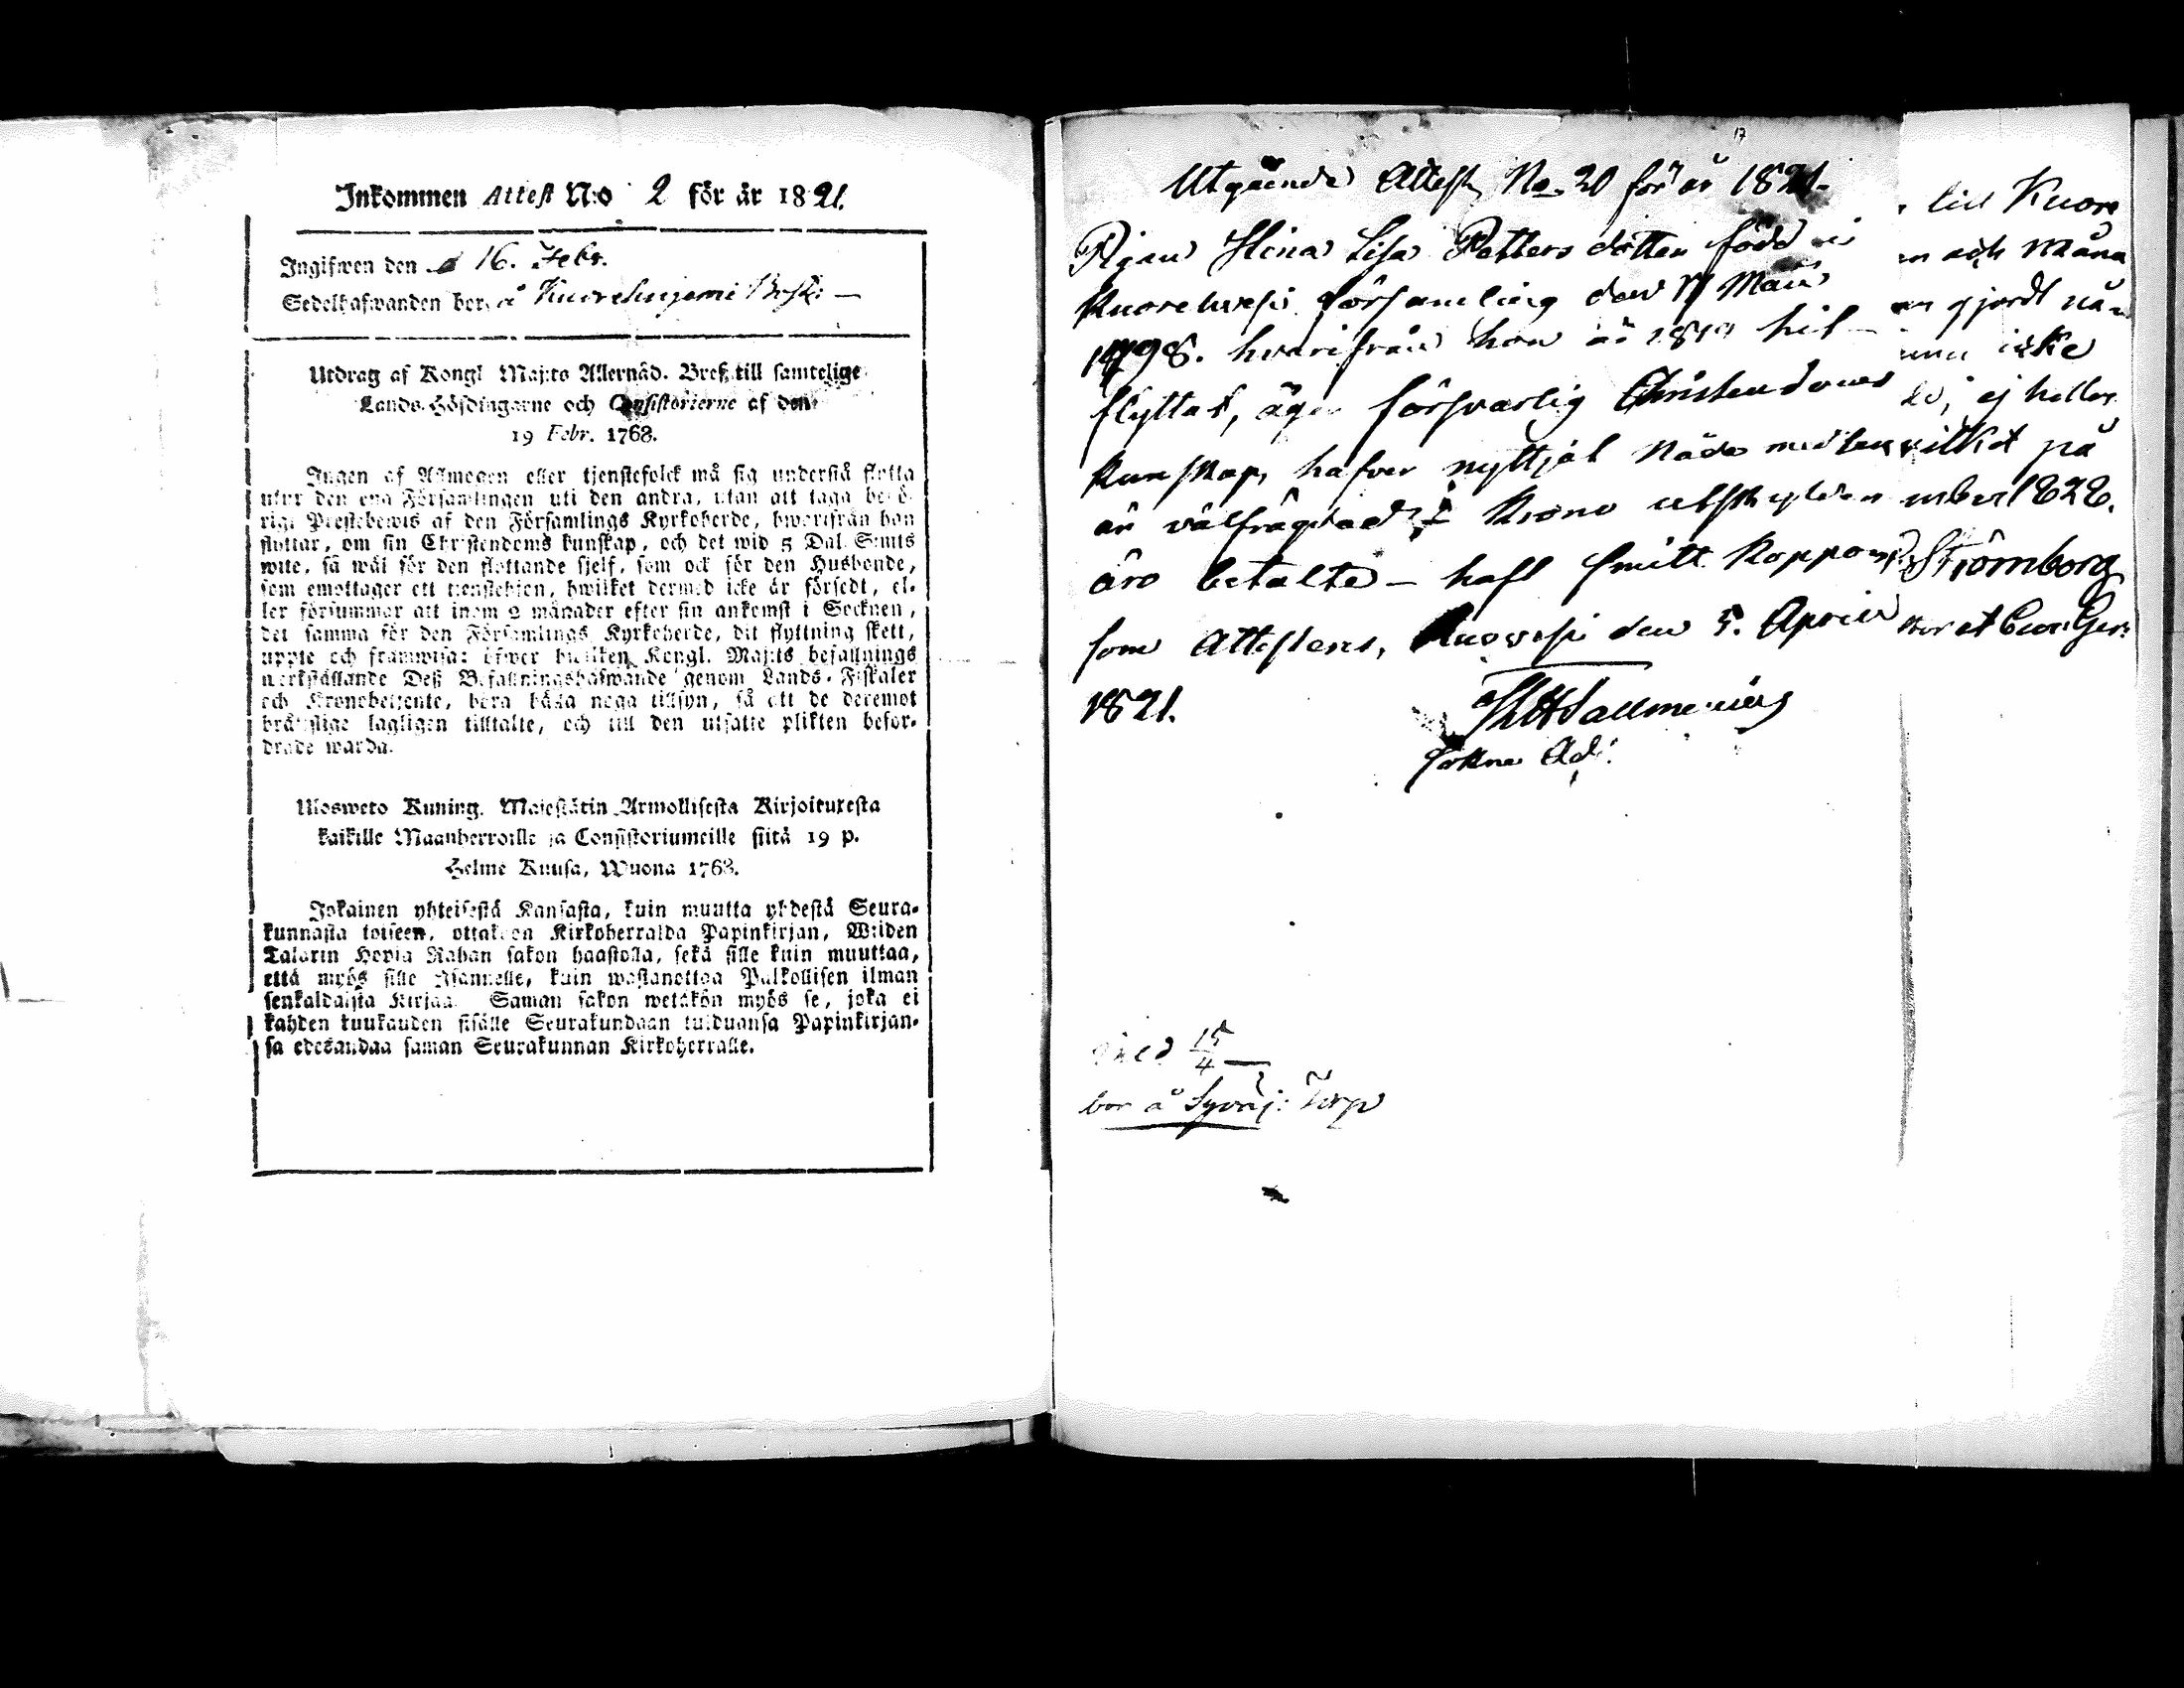 Inkommen Attest N:o 2 för år 1821.
Ingifwen den 16. Febr.
Sedelhafwanden bor å
Utdrag af Kongl Maj:ts Allernåd. Bref till samtelige
Lands-Höfdingarne och Consistorierne af den
19 Febr. 1768.
Ingen af Allmogen eller tjenstefolck må sig understå flytta
utur den ena Församlingen uti den andra, utan att taga behö-
rigt Prestebewis af den Församlings Kyrkoherde, hwarifrån han
flyttar, om sin Christendoms kunskap, och det wid 5 Dal. S:mts
wite, så wäl för den flyttande sjelf, som ock för den Husbonde,
som emottager ett tienstehjon, hwilket dermed icke är försedt, el-
ler försummar att inom 2 månader efter sin ankomst i Socknen,
det samma för den Församlings Kyrkoherde, dit flyttning skett,
uppte och framwisa: öfwer hwilken Kongl. Maj:ts befallnings
werkställande Deß Befallningshafwande genom Lands-Fiskaler
och Kronobetjente, böra hålla noga tillsyn, så att de deremot
bråtslige lagligen tilltalte, och till den utsatte plikten befor-
drade warda.
Ulosweto Kuning. Majestätin Armollisesta Kirjoituxesta
kaikille Maanherroille ja Consistoriumeille siitä 19 p.
Helme Kuusa, Wuona 1768.
Jokainen yhteisestä Kansasta, kuin muutta yhdestä Seura-
kunnasta toiseen, ottakoon Kirkoherralda Papinkirjan, Wiiden
Talarin Hopia Rahan sakon haastolla, sekä sille kuin muuttaa,
että myös sille Isännelle, kuin wastanottaa Palkollisen ilman
senkaldaista Kirjaa. Saman sakon wetäkön myös se, joka ei
kahden kuukauden sisälle Seurakundaan tulduansa Papinkirjan-
sa edesandaa saman Seurakunnan Kirkoherralle.
17
Utgående Attest No 20 för år 1821.
Pigan Hena Lisa Petters dotter född i
Kuorevesi församling den 17 Maii
1798. hvarifrån hon år 1819 hit
flyttat, äger försvarlig Christendoms
kunskap, hafver nyttjat Nåde medlen
är välfrägdad, Krono utskylder
äro betalte - haft Smitt Koppor,
som Attesteras, Kuorvesi den 5. April
1821.
Sokne Adj:
15
4
bor å Torp
lill Kuore
och Måna
gjordt
icke
ej heller
vilket på
mber 1828.
Strömborg